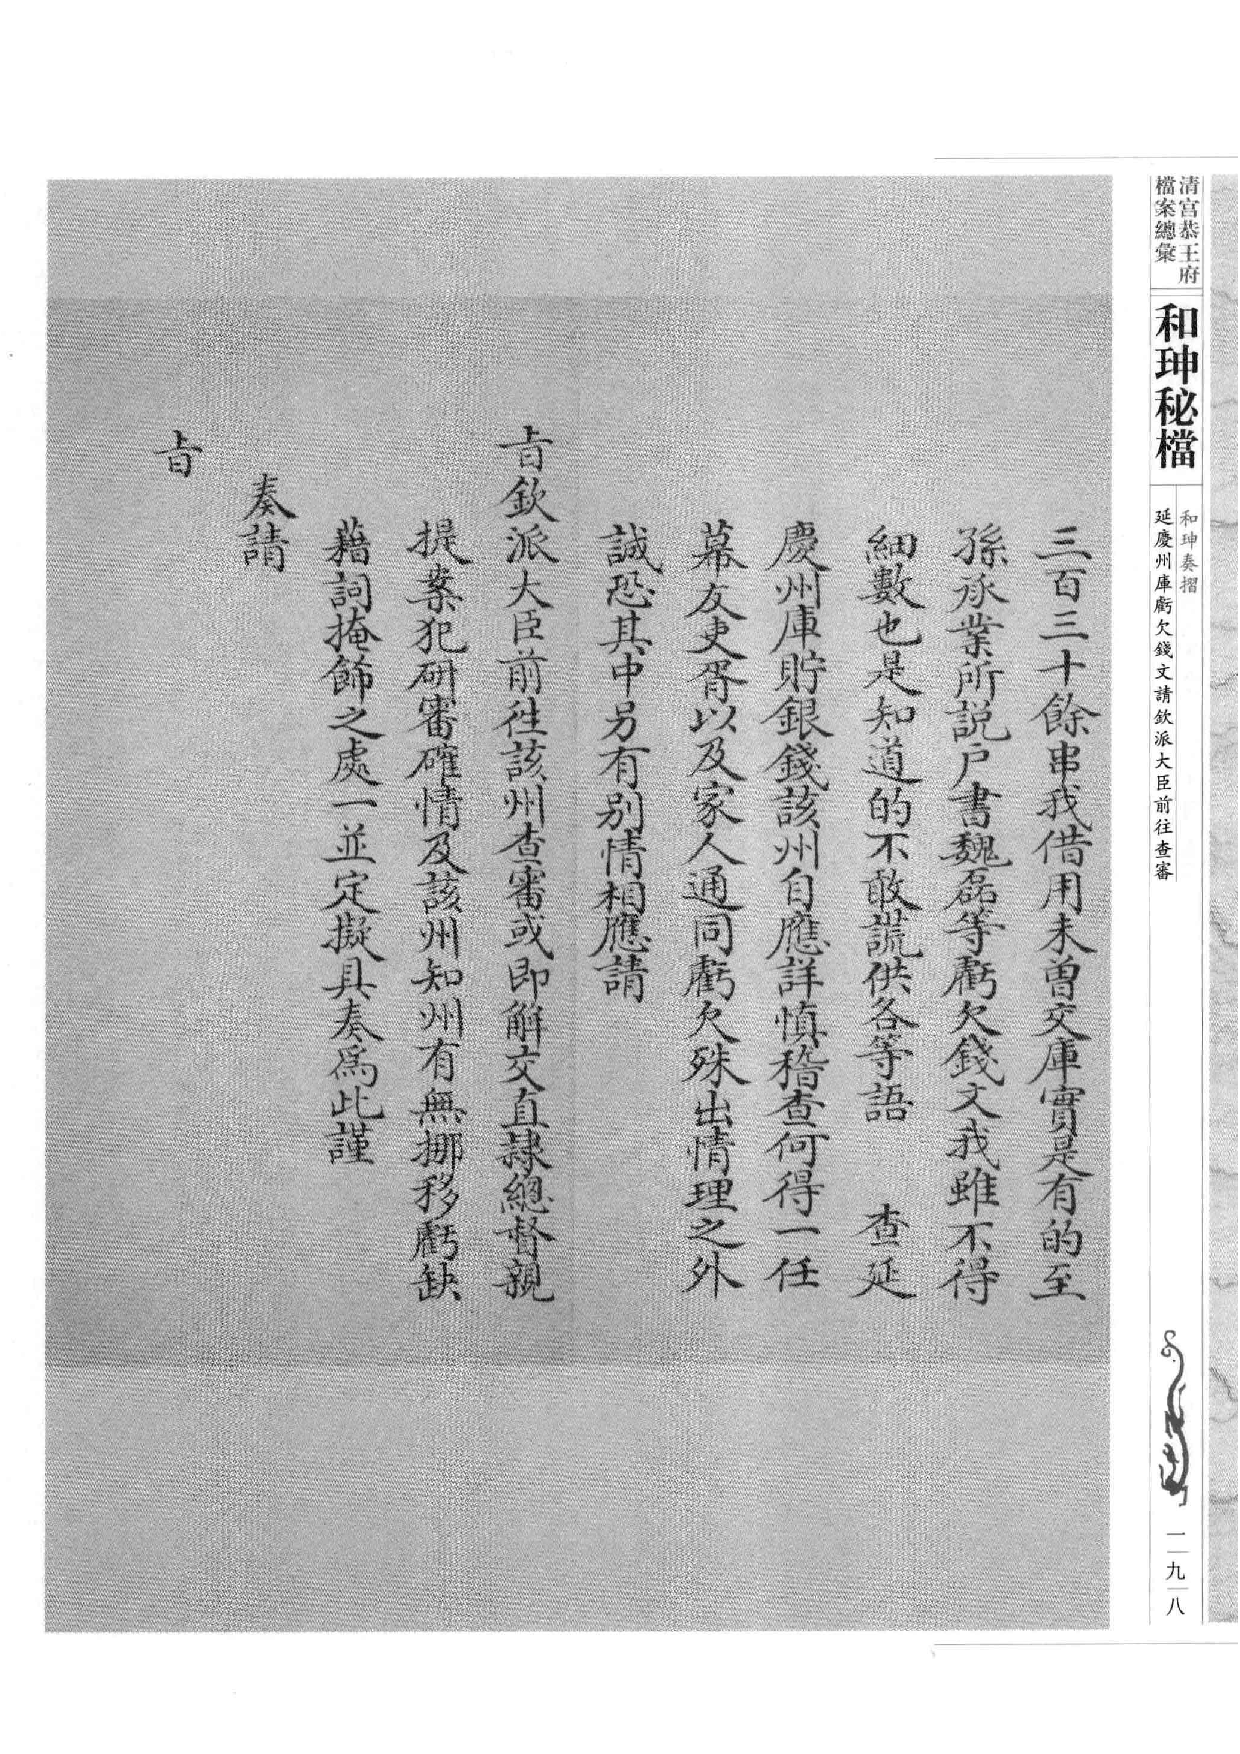 清宮恭王府
檔案總彙
和珅秘檔
和珅奏摺
延慶州庫虧欠錢文請欽派大臣前往查審
一九八
三百三十餘串我借用未曾交庫實是有的至
孫承業所說戶書魏磊等虧欠錢文我雖不得
細數也是知道的不敢謊供各等語　查延
慶州庫貯銀錢該州自應詳慎稽查何得一任
幕友吏胥以及家人通同虧欠殊出情理之外
誠恐其中另有別情相應請
旨欽派大臣前往該州查審或即解交直隸總督親
提案犯研審確情及該州知州有無挪移虧缺
藉詞掩飾之處一並定擬具奏爲此謹
奏請
旨